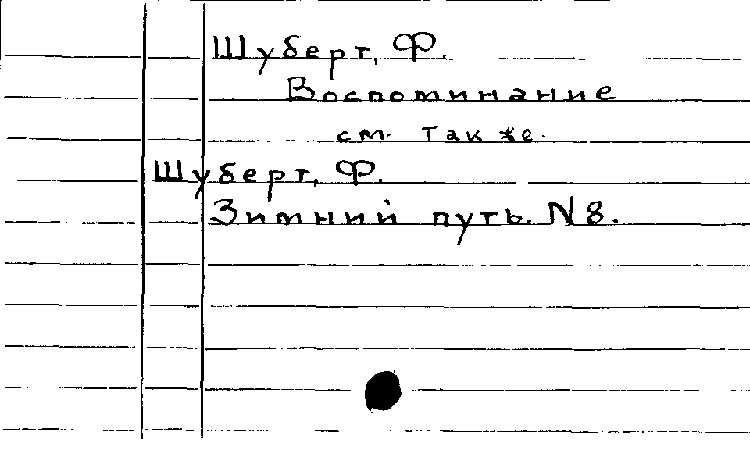 Шуберт, Ф.
Воспоминание
см. также.
Шуберт, Ф.
Зимний путь. N 8.